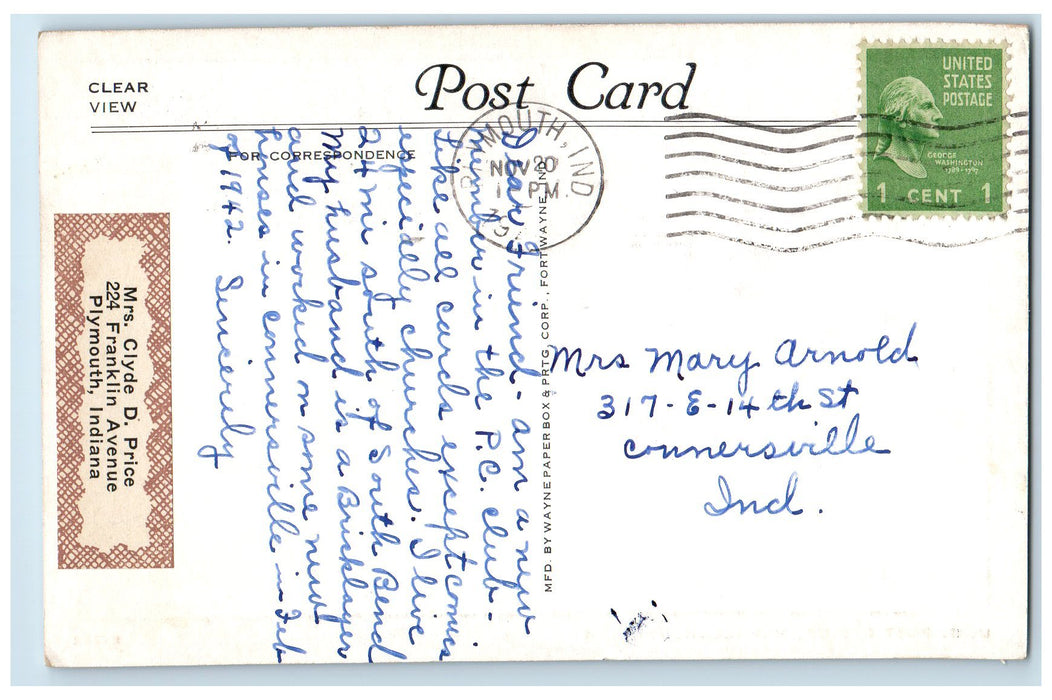 CLEAR
VIEW
Post Card
FOR CORRESPONDENCE
UNITED
STATES
POSTAGE
GEORGE
WASHINGTON
1789-1797
1 CENT 1
PLYMOUTH, IND
NOV 20
1 PM
Dear Friend- am a new
number in the P.C. club-
Like all cards except comics
especially churches. I live
24 mi south of South Bend
My husband is a Bricklayer
and worked on some new
houses in connersville in Feb
of 1942. Sincerely
Mrs. Clyde D. Price
224 Franklin Avenue
Plymouth, Indiana
MFD. BY WAYNE PAPER BOX & PRTG. CORP., FORT WAYNE, IND.
Mrs Mary Arnold
317-E-14th St
Connersville
Ind.